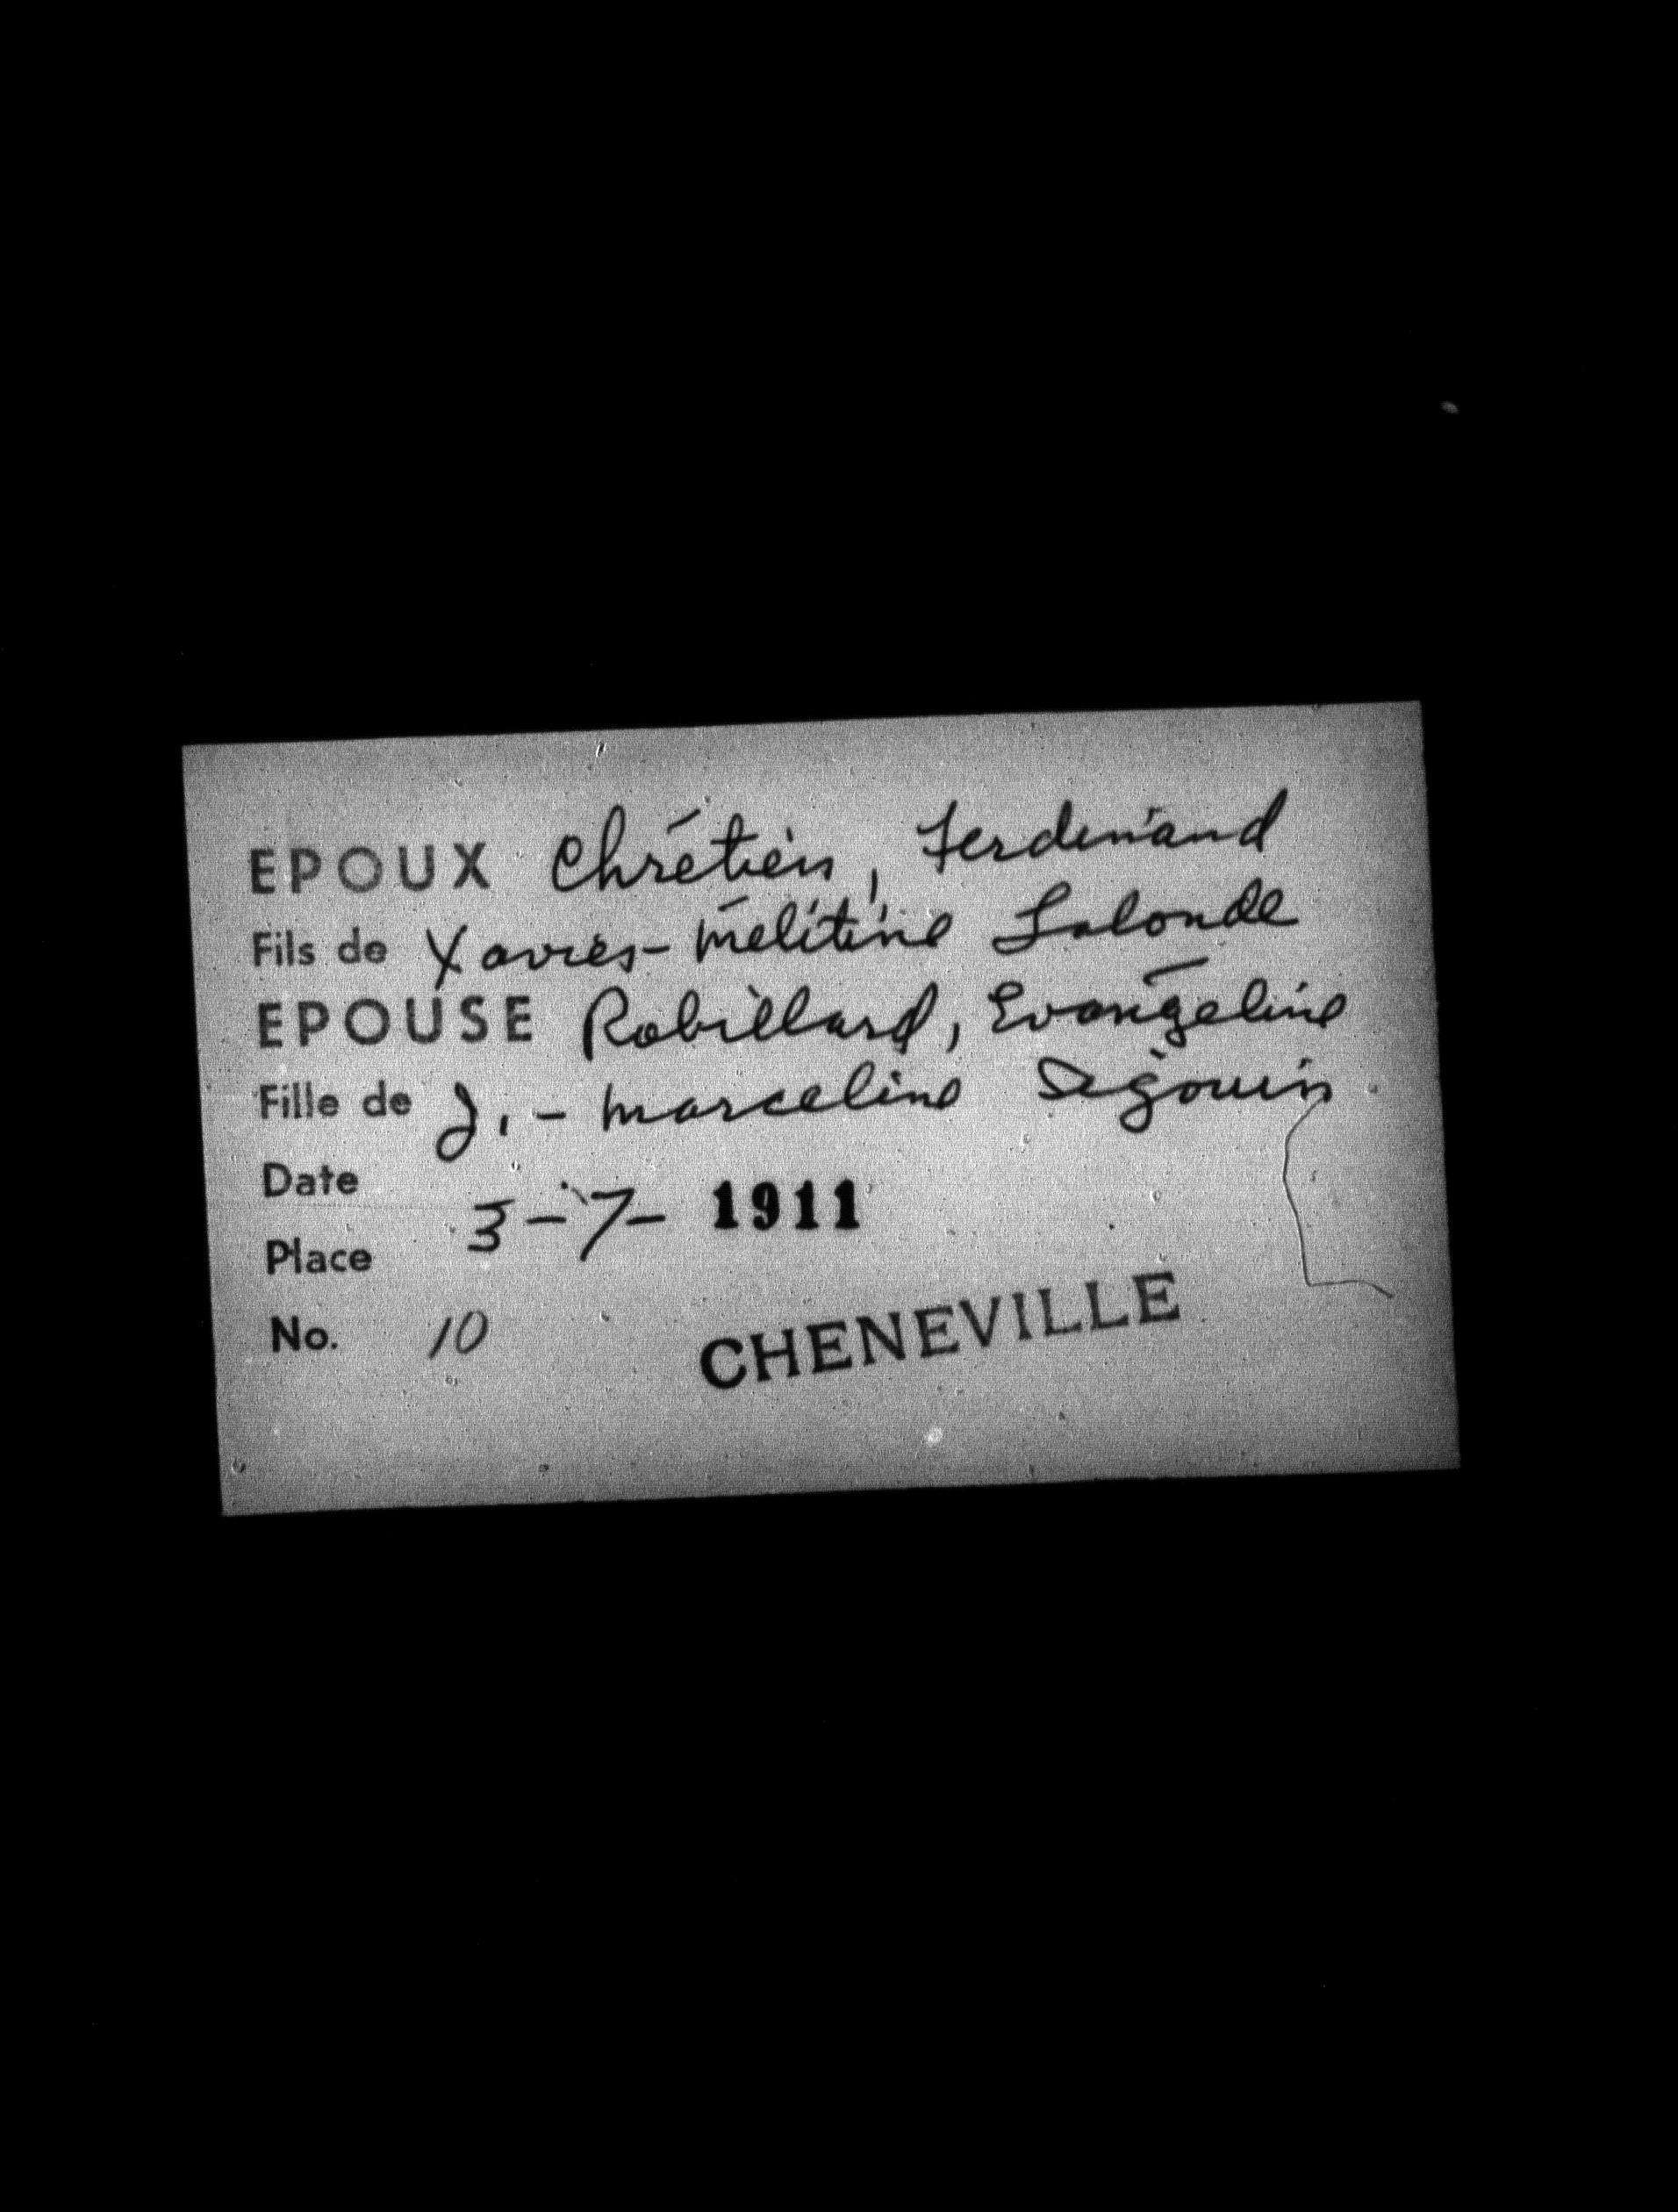 EPOUX Chrétien, Ferdinand
Fils de Xavier - Mélitine Lalonde
EPOUSE Robillard, Evangéline
Fille de J. - Marceline Séguin
Date 3-7-1911
Place
No. 10
CHENEVILLE